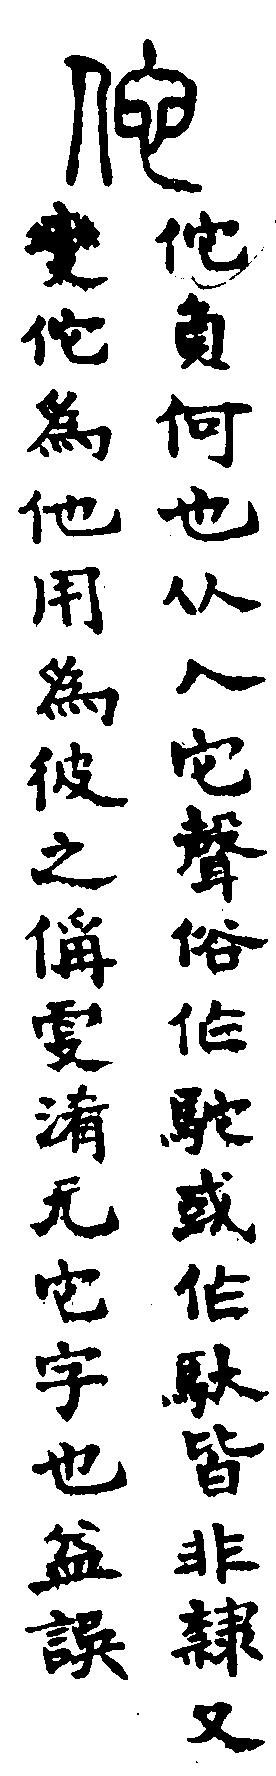 佗
佗負何也从人它聲俗作駝或作馱皆非隸又
變佗為他用為彼之偁雯淆无它字也益誤